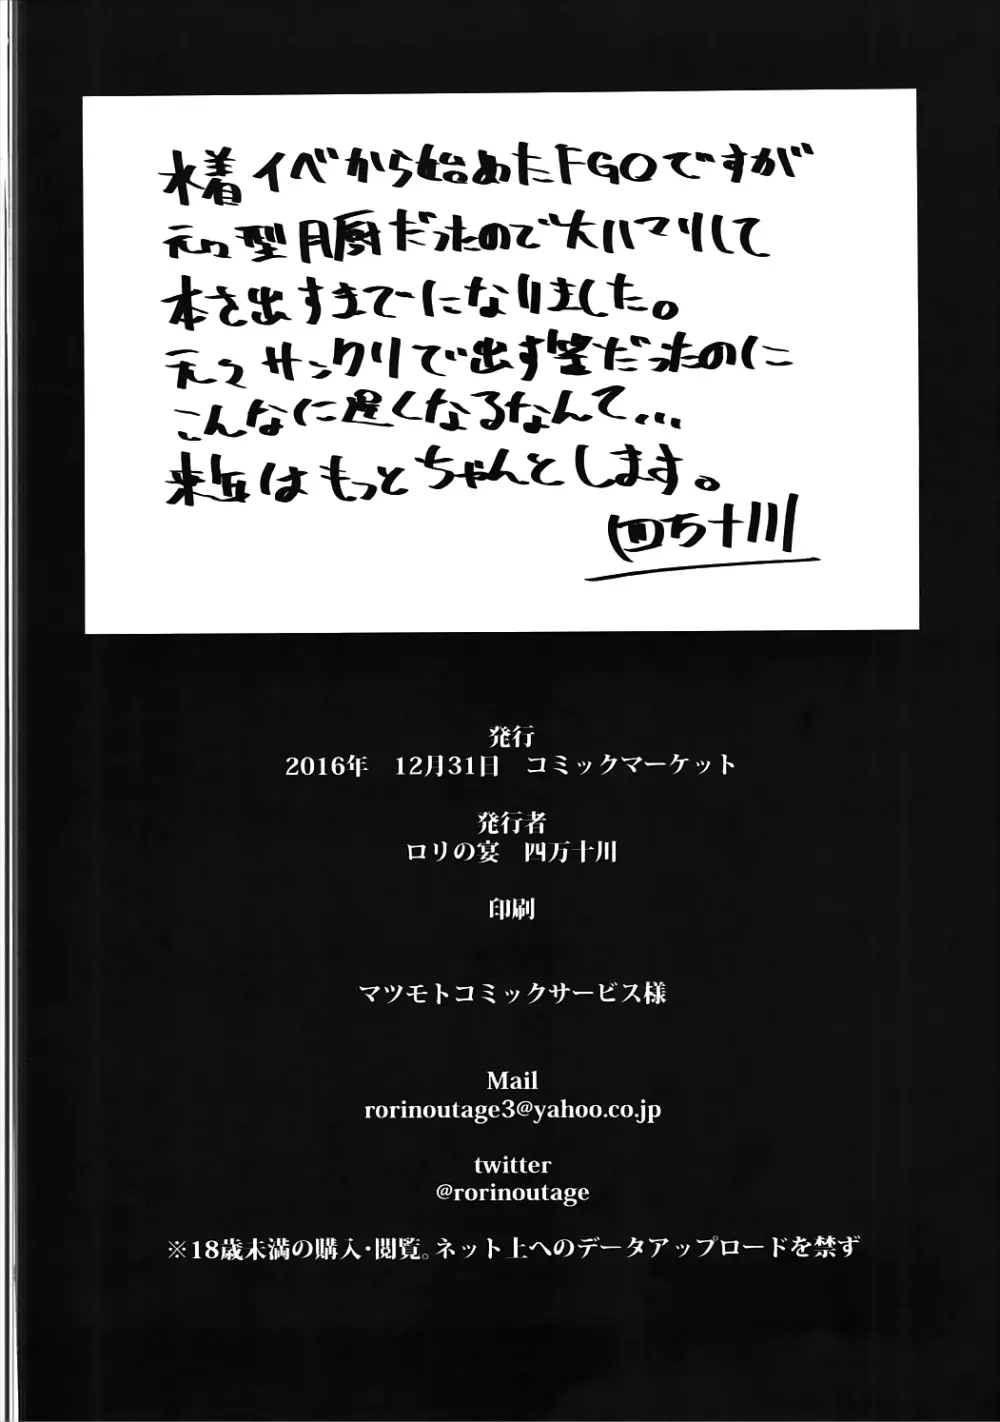 水着イベから始めたFGOですが
元々型月厨だったので大ハマりして
本を出すまでーになりました。
元々サンクリで出す筈だったのに
こんなに遅くなるなんて…
来年はもっとちゃんとします。
四万十川
発行
2016年　12月31日　コミックマーケット
発行者
ロリの宴　四万十川
印刷
マツモトコミックサービス様
Mail
rorinoutage3@yahoo.co.jp
twitter
@rorinoutage
※18歳未満の購入・閲覧。ネット上へのデータアップロードを禁ず